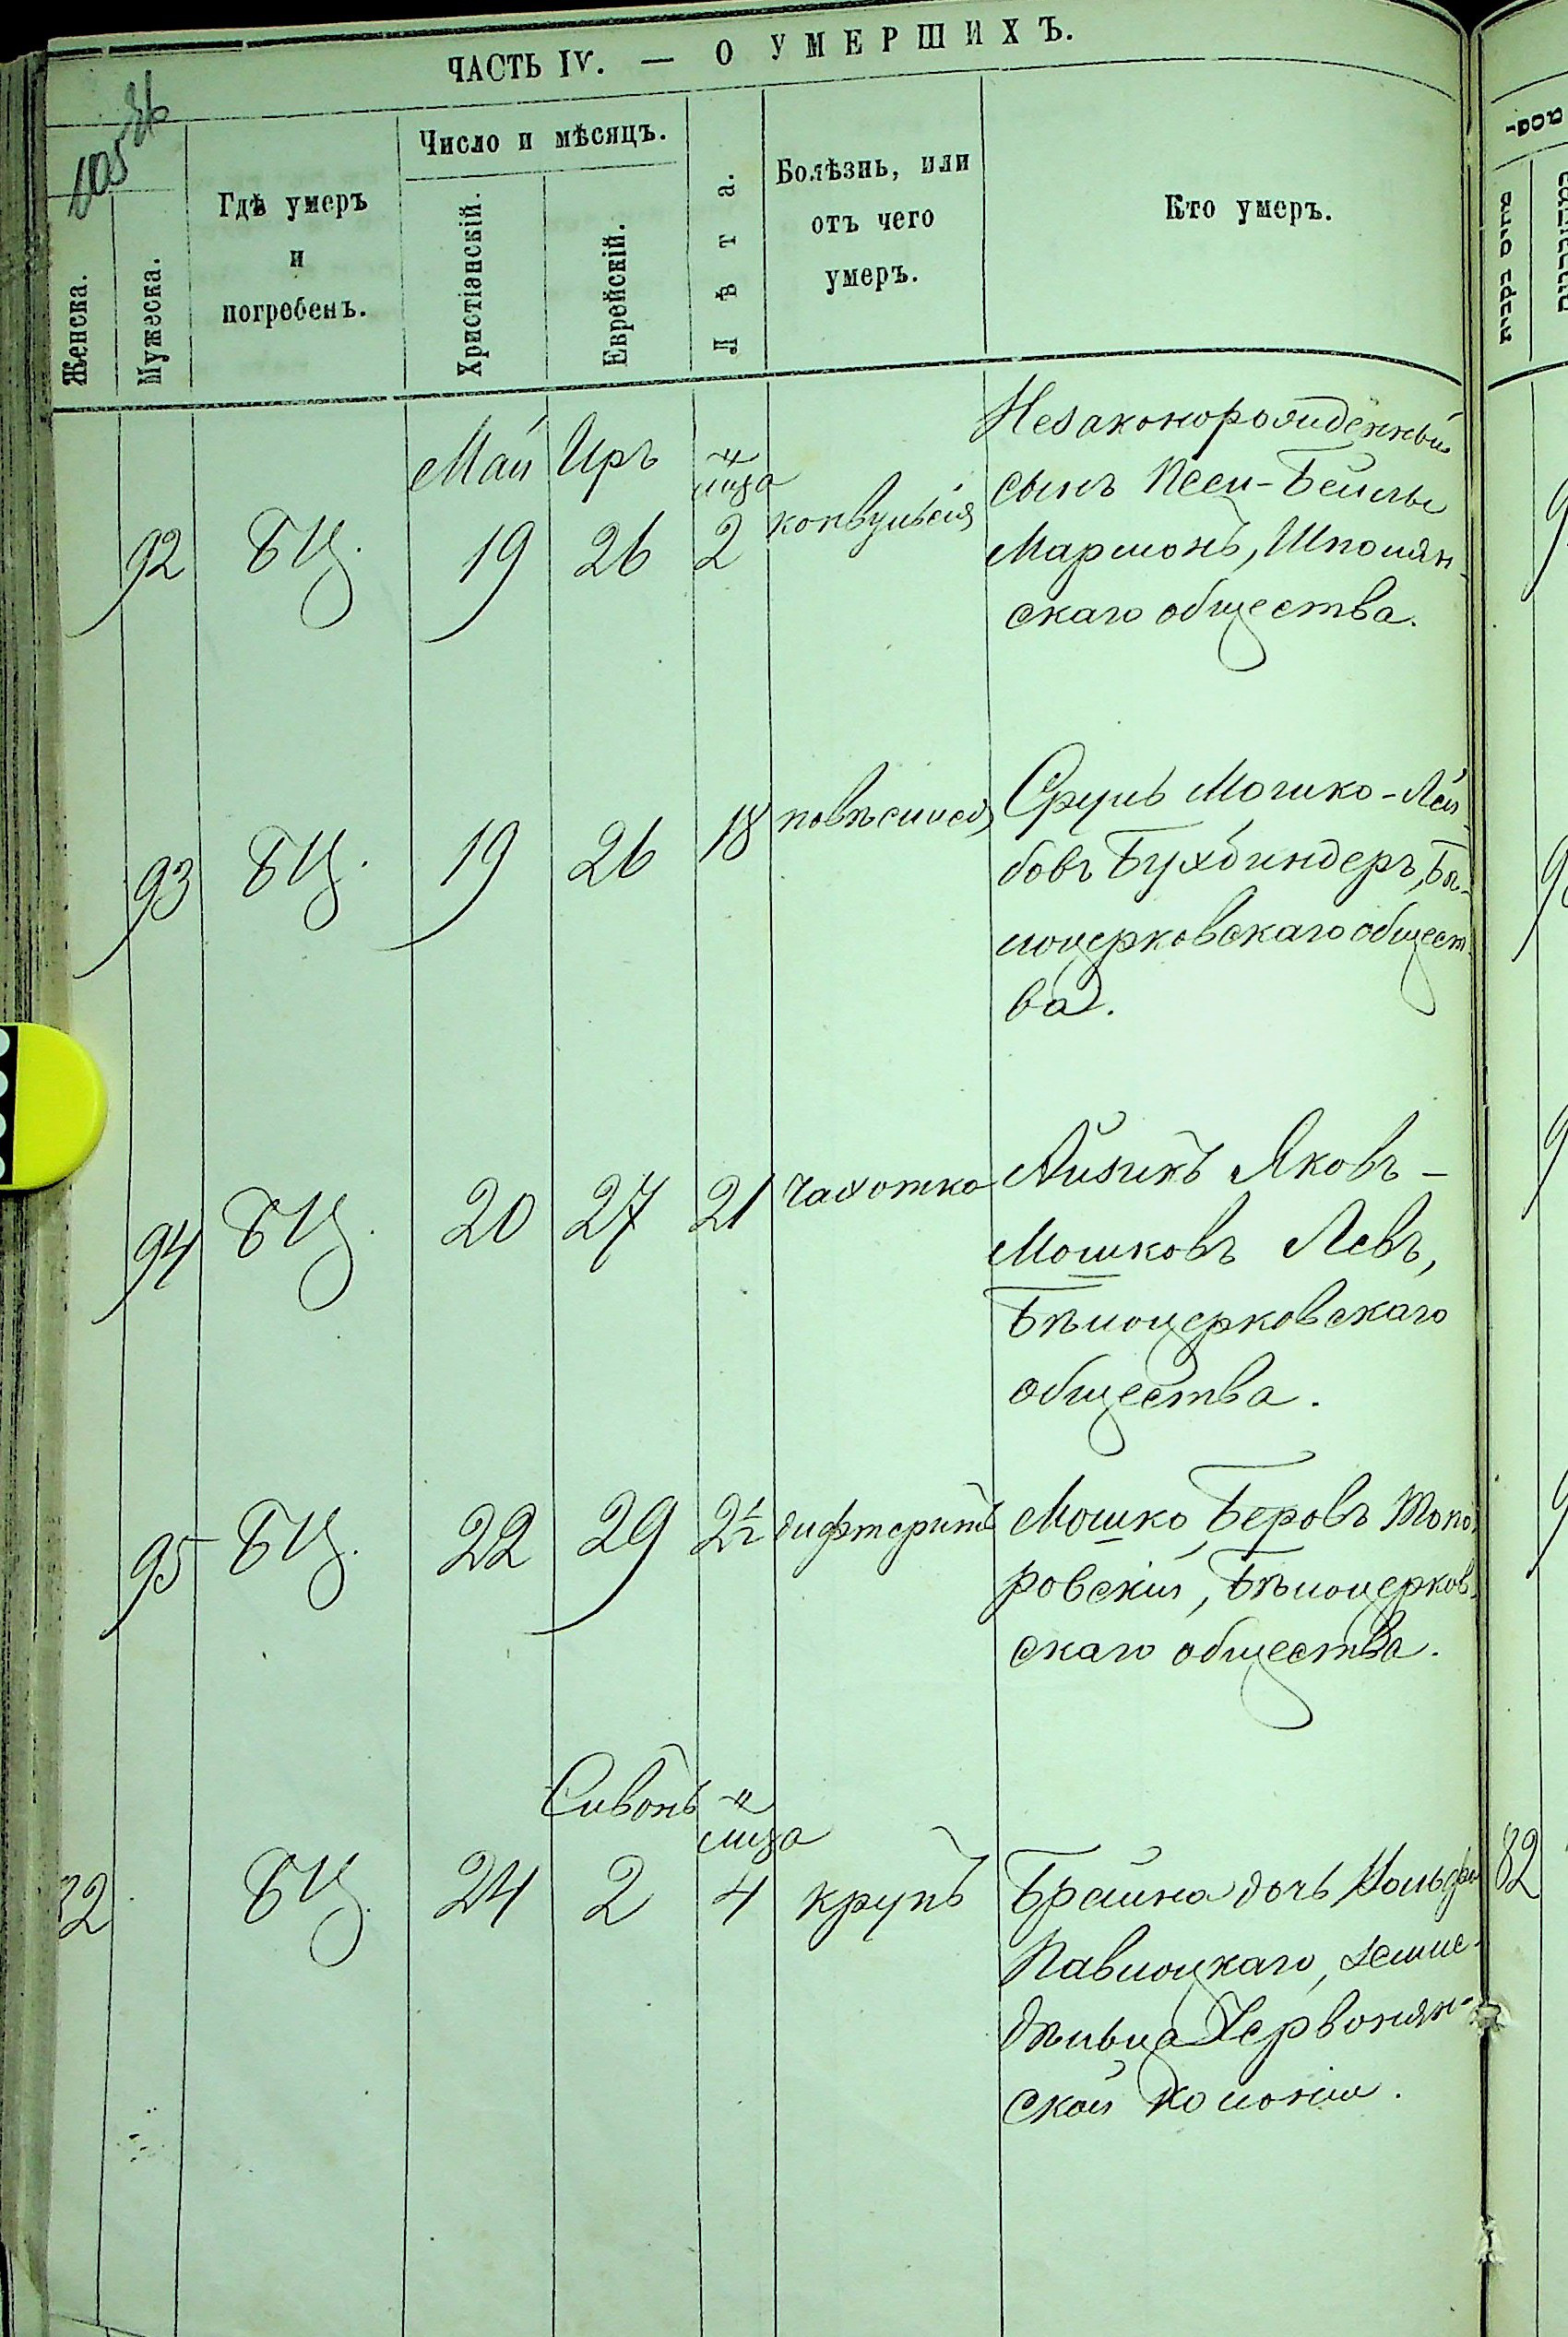 ЧАСТЬ IV. — О УМЕРШИХЪ.
105 86
Женска.
Мужеска.
Гдѣ умеръ
и
погребенъ.
Число и мѣсяцъ.
Христіанскій.
Еврейскій.
Лѣта.
Болѣзнь, или
отъ чего
умеръ.
Кто умеръ.
Май Иръ м-ца
92 БЦ. 19 26 2 конвульсія
Незаконорожденный
сынъ Песи-Бейлы
Мармонъ, Шполян-
скаго общества.
93 БЦ. 19 26 18 повѣсился
Сруль Мошко-Лей-
бовъ Бухбиндеръ, Бѣ-
лоцерковскаго общест-
ва.
94 БЦ. 20 27 21 чахотка
Айзикъ Яковъ-
Мошковъ Левъ,
Бѣлоцерковскаго
общества.
95 БЦ. 22 29 2½ дифтеритъ
Мошко Беровъ Топо-
ровскій, Бѣлоцерков-
скаго общества.
Сивонъ м-ца
82 БЦ. 24 2 4 крупъ
Брайна дочь Вольфа
Павлоцкаго, земле-
дѣльца Червонян-
ской колоніи.
82